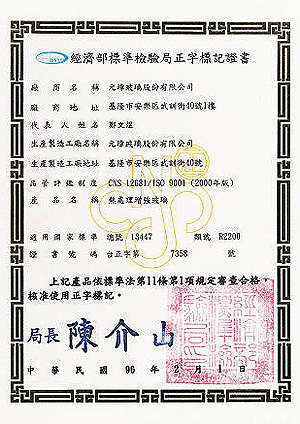 經濟部標準檢驗局正字標記證書
廠商名稱 元璋玻璃股份有限公司
廠商地址 基隆市安樂區武訓街40號1樓
代表人姓名 鄭文煜
生產製造工廠名稱 元璋玻璃股份有限公司
生產製造工廠地址 基隆市安樂區武訓街40號
品管評鑑制度 CNS 12681/ISO 9001 (2000年版)
產品名稱 熱處理增強玻璃
適用國家標準 總號 13447 類號 R2200
證書號碼 台正字第 7358 號
上記產品依標準法第11條第1項規定審查合格
核准使用正字標記。
局長 陳介山
中華民國 96年 2月 1日